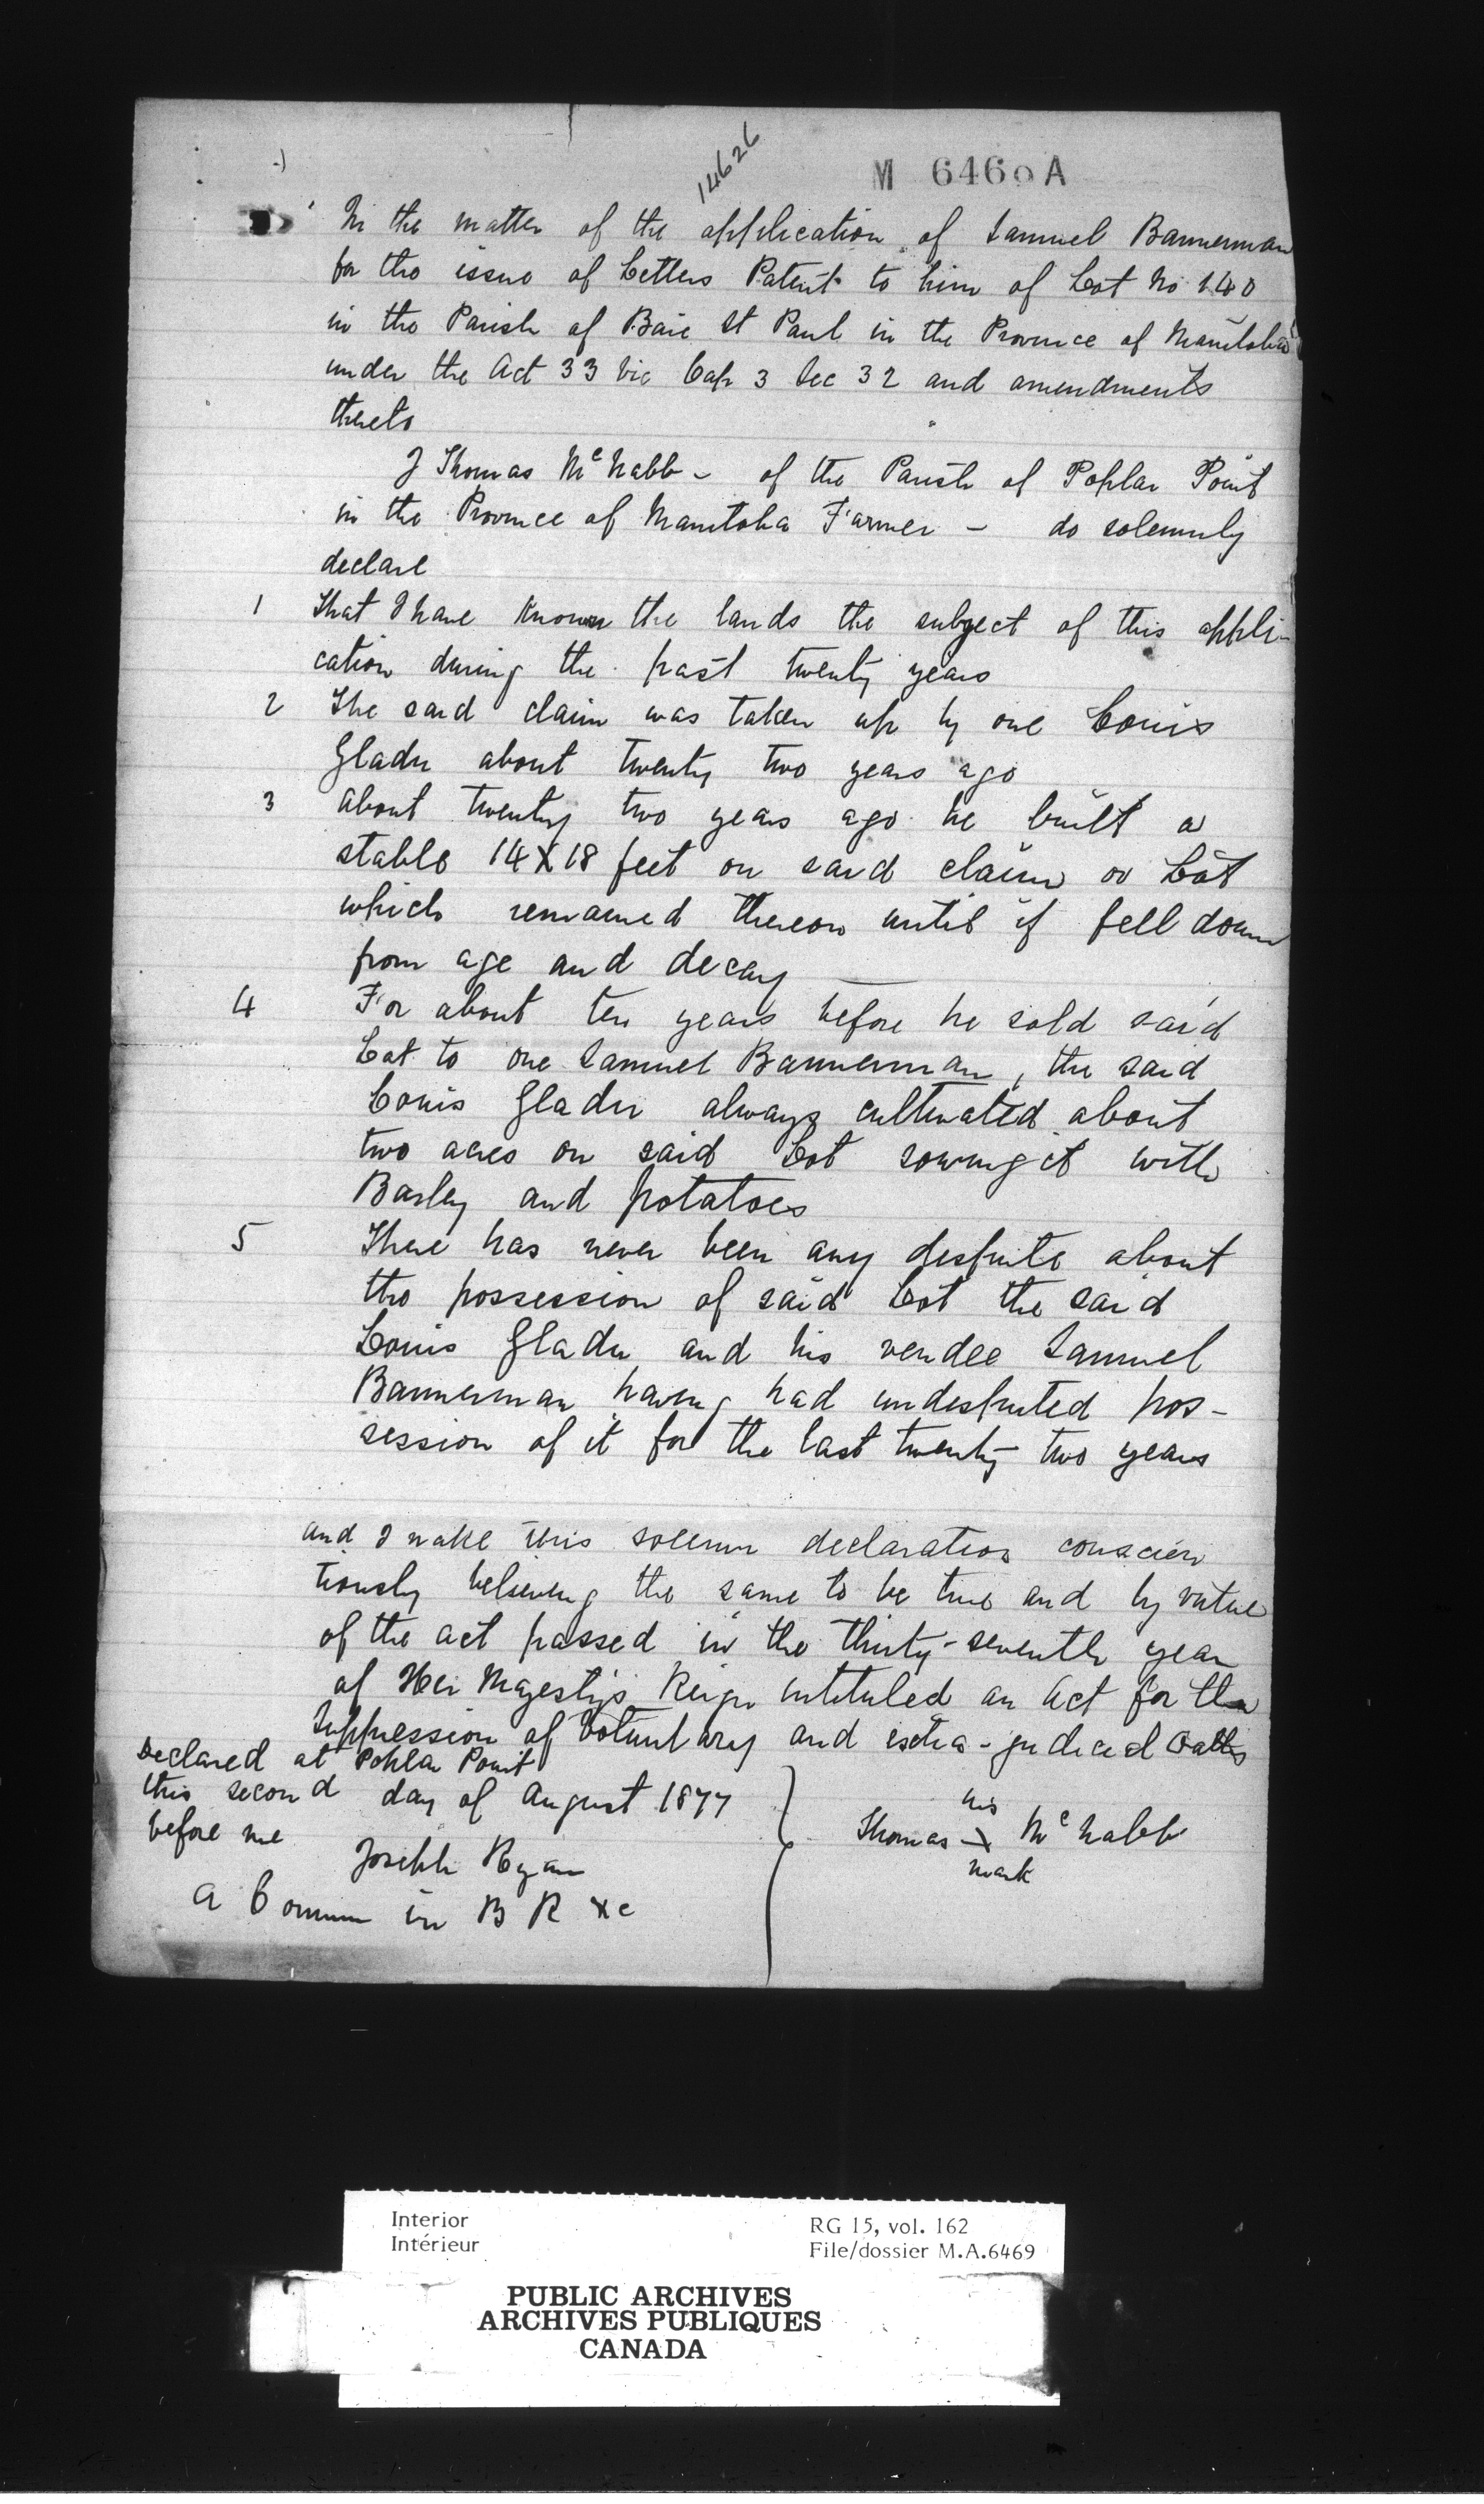 14626
M 6469 A
In the matter of the application of Samuel Bannerman
for the issue of Letters Patent to him of Lot No 140
in the Parish of Baie St Paul in the Province of Manitoba
under the Act 33 Vic Cap 3 Sec 32 and amendments
thereto
I Thomas McNabb - of the Parish of Poplar Point
in the Province of Manitoba Farmer - do solemnly
declare
1 That I have known the lands the subject of this appli-
cation during the past twenty years
2 The said claim was taken up by one Louis
Gladu about twenty two years ago
3 About twenty two years ago he built a
stable 14 X 18 feet on said claim or Lot
which remained thereon until it fell down
from age and decay
4 For about ten years before he sold said
Lot to one Samuel Bannerman, the said
Louis Gladu always cultivated about
two acres on said Lot sowing it with
Barley and potatoes
5 There has never been any dispute about
the possession of said Lot the said
Louis Gladu and his vendee Samuel
Bannerman having had undisputed pos-
session of it for the last twenty two years
And I make this solemn declaration conscien
tiously believing the same to be true and by virtue
of the act passed in the thirty-seventh year
of Her Majesty's Reign intituled an Act for the
Suppression of Voluntary and extra-judicial Oaths
Declared at Poplar Point
this second day of August 1877
before me
Joseph Ryan
A Comm in B R &c
his
Thomas X McNabb
mark
Interior
Intérieur
RG 15, vol. 162
File/dossier M.A.6469
PUBLIC ARCHIVES
ARCHIVES PUBLIQUES
CANADA